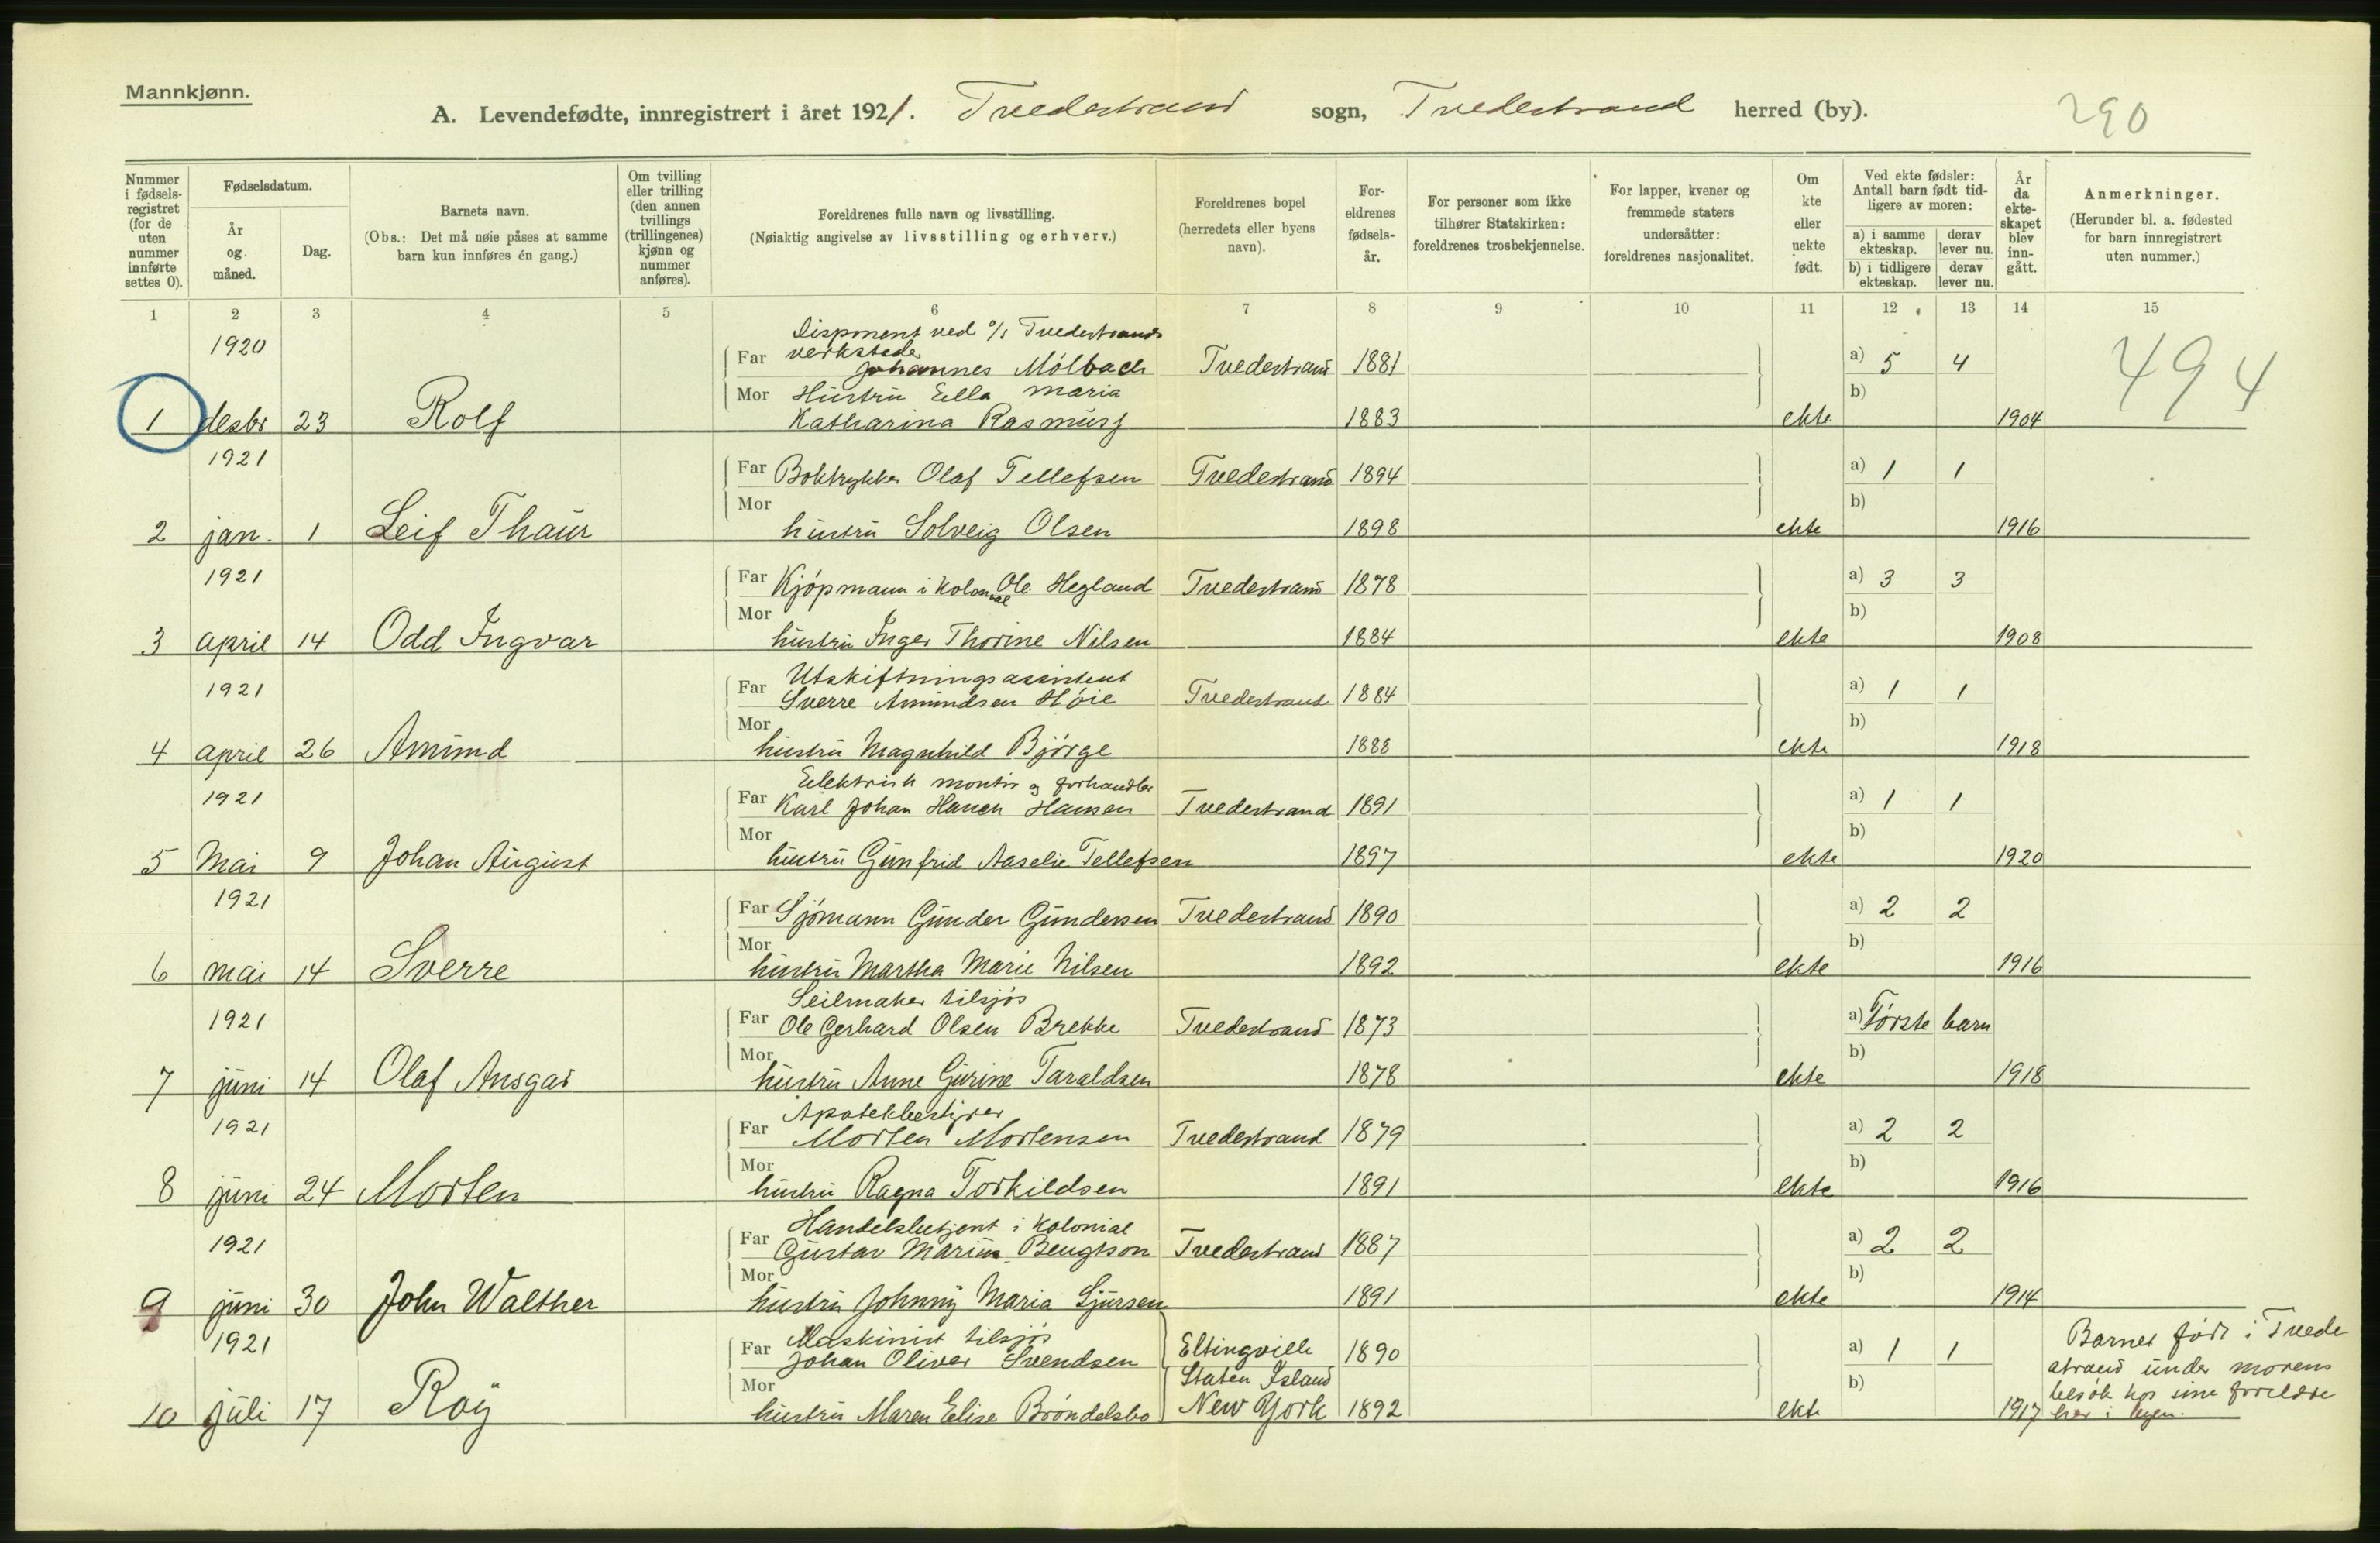 Mannkjønn.
A. Levendefødte, innregistrert i året 1921. Tvedestrand sogn, Tvedestrand herred (by). 290
Nummer i fødsels-registret (for de uten nummer innførte settes 0).
Fødselsdatum.
År og måned.
Dag.
Barnets navn.
(Obs.: Det må nøie påses at samme barn kun innføres én gang.)
Om tvilling eller trilling (den annen tvillings (trillingenes) kjønn og nummer anføres).
Foreldrenes fulle navn og livsstilling.
(Nøiaktig angivelse av livsstilling og erhverv.)
Foreldrenes bopel
(herredets eller byens navn).
For-eldrenes fødsels-år.
For personer som ikke tilhører Statskirken: foreldrenes trosbekjennelse.
For lapper, kvener og fremmede staters undersåtter: foreldrenes nasjonalitet.
Om kte eller uekte født.
Ved ekte fødsler: Antall barn født tid-ligere av moren:
a) i samme ekteskap. derav lever nu.
b) i tidligere ekteskap. derav lever nu.
År da ekte-skapet blev inn-gått.
Anmerkninger.
(Herunder bl. a. fødested for barn innregistrert uten nummer.)
1 2 3 4 5 6 7 8 9 10 11 12 13 14 15
1920 Disponent ved a/s Tvedestrands
verkstede
Far Johannes Mölbach Tvedestrand 1881 a) 5 4 494
Mor Hustru Ella Maria b)
1 desbr 23 Rolf Katharina Rasmuss 1883 ekte 1904
1921 Far Boktrykker Olaf Tellefsen Tvedestrand 1894 a) 1 1
Mor b)
2 jan. 1 Leif Thaur hustru Solveig Olsen 1898 ekte 1916
1921 Far Kjöpmann i kolonial Ole Hegland Tvedestrand 1878 a) 3 3
Mor b)
3 april 14 Odd Ingvar hustru Inger Thorine Nilsen 1884 ekte 1908
1921 Utskiftningsassistent
Far Sverre Amundsen Höie Tvedestrand 1884 a) 1 1
Mor b)
4 april 26 Amund hustru Magnhild Björge 1888 ekte 1918
Eelektrisk montör og forhandler
1921 Far Karl Johan Hansen Tvedestrand 1891 a) 1 1
Mor b)
5 Mai 9 Johan August hustru Gunfrid Aaselie Tellefsen 1897 ekte 1920
1921 Far Sjömann Gunder Gundersen Tvedestrand 1890 a) 2 2
Mor b)
6 mai 14 Sverre hustru Martha Marie Nilsen 1892 ekte 1916
Seilmaker tilsjös
1921 Far Ole Gerhard Olsen Brekke Tvedestrand 1873 a) Förste barn
Mor b)
7 juni 14 Olaf Ansgar hustru Anne Gurine Taraldsen 1878 ekte 1918
Apotekbestyrer
1921 Far Morten Mortensen Tvedestrand 1879 a) 2 2
Mor b)
8 juni 24 Morten hustru Ragna Torkildsen 1891 ekte 1916
Handelsbetjent i kolonial
1921 Far Gustav Marius Bengtson Tvedestrand 1887 a) 2 2
Mor b)
9 juni 30 John Walther hustru Johnny Maria Sjursen 1891 ekte 1914
1921 Maskinist tilsjös Barnet födt i Tvede
Far Johan Oliver Svendsen Eltingville 1890 a) 1 1 strand under morens
Mor Staten Island b) besök hos sine foreldre
10 juli 17 Roy hustru Maren Elise Bröndelsbo New York 1892 ekte 1917 her i byen.